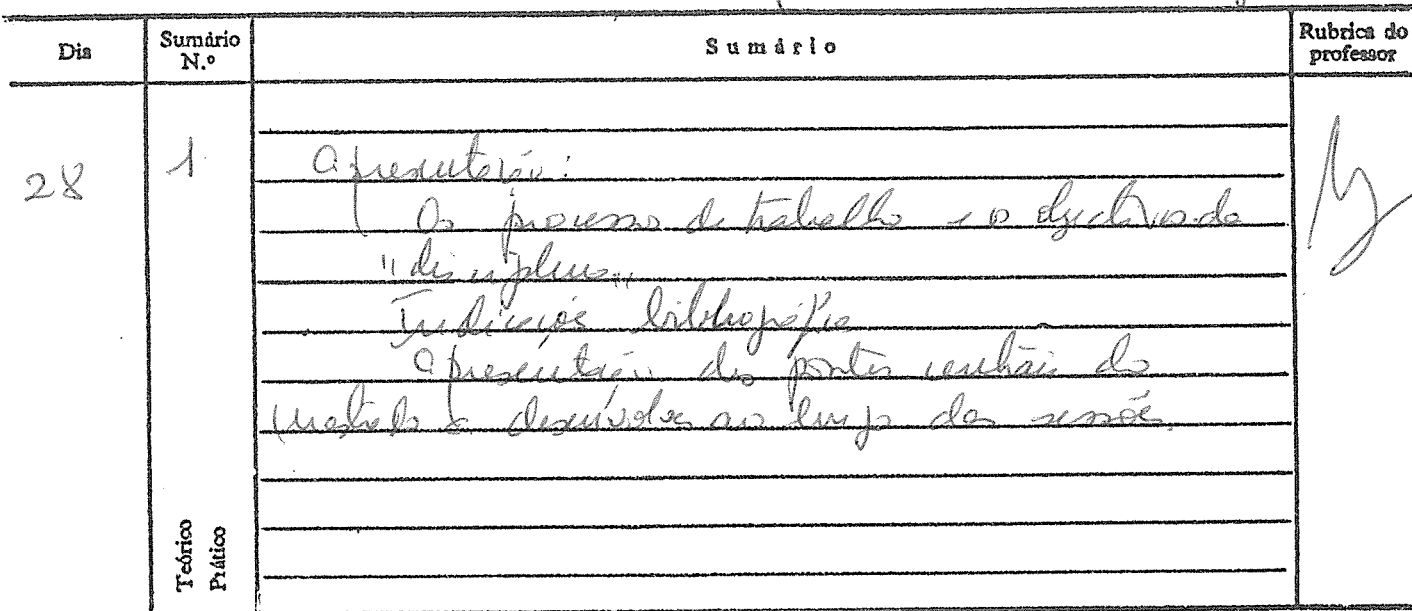 Dia Sumário N.º Sumário Rubrica do professor
28 1 Apresentação:
Os processos de trabalho e os objectivos da
"disciplina"
Indicações bibliográficas
Apresentação dos pontos centrais do
mestrado a desenvolver ao longo das sessões.
Teórico
Prático